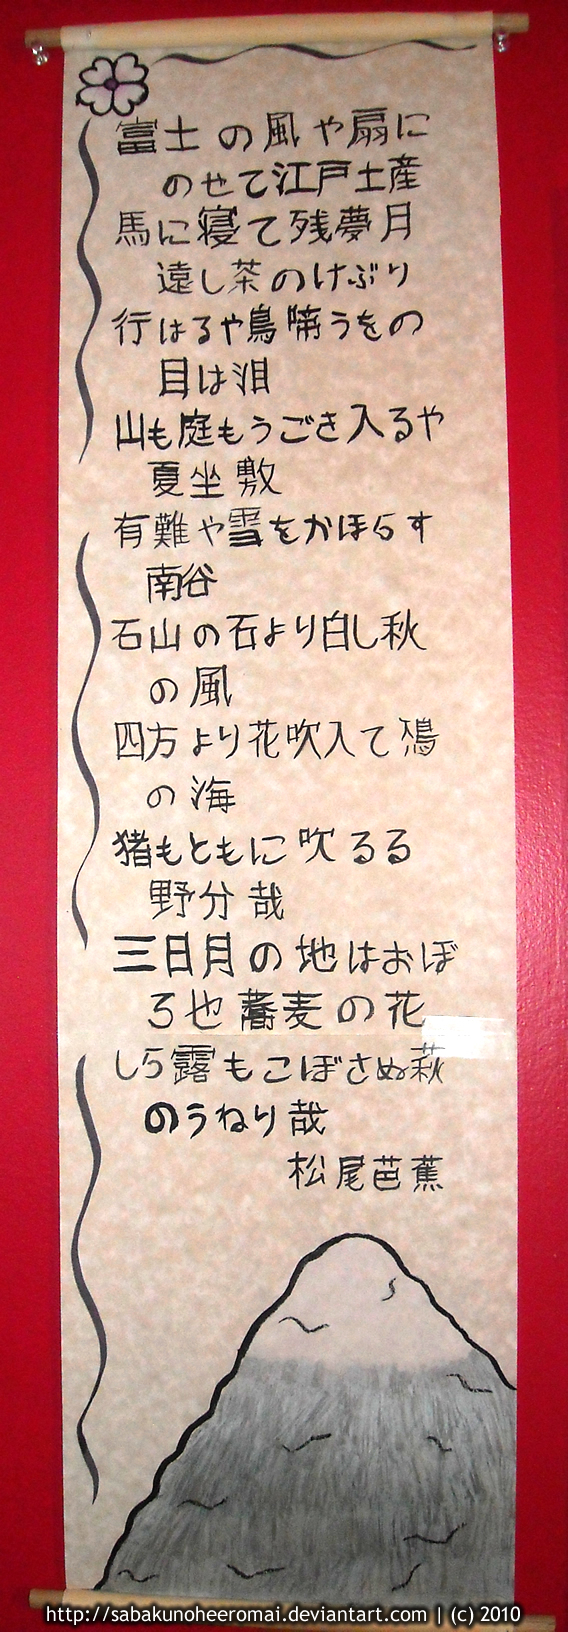 富士の風や扇に
のせて江戸土産
馬に寝て残夢月
遠し茶のけぶり
行はるや鳥啼うをの
目は泪
山も庭もうごき入るや
夏坐敷
有難や雪をかほらす
南谷
石山の石より白し秋
の風
四方より花吹入て鳰
の海
猪もともに吹るる
野分哉
三日月の地はおぼ
ろ也蕎麦の花
しら露もこぼさぬ萩
のうねり哉
松尾芭蕉
http://sabakunoheeromai.deviantart.com | (c) 2010